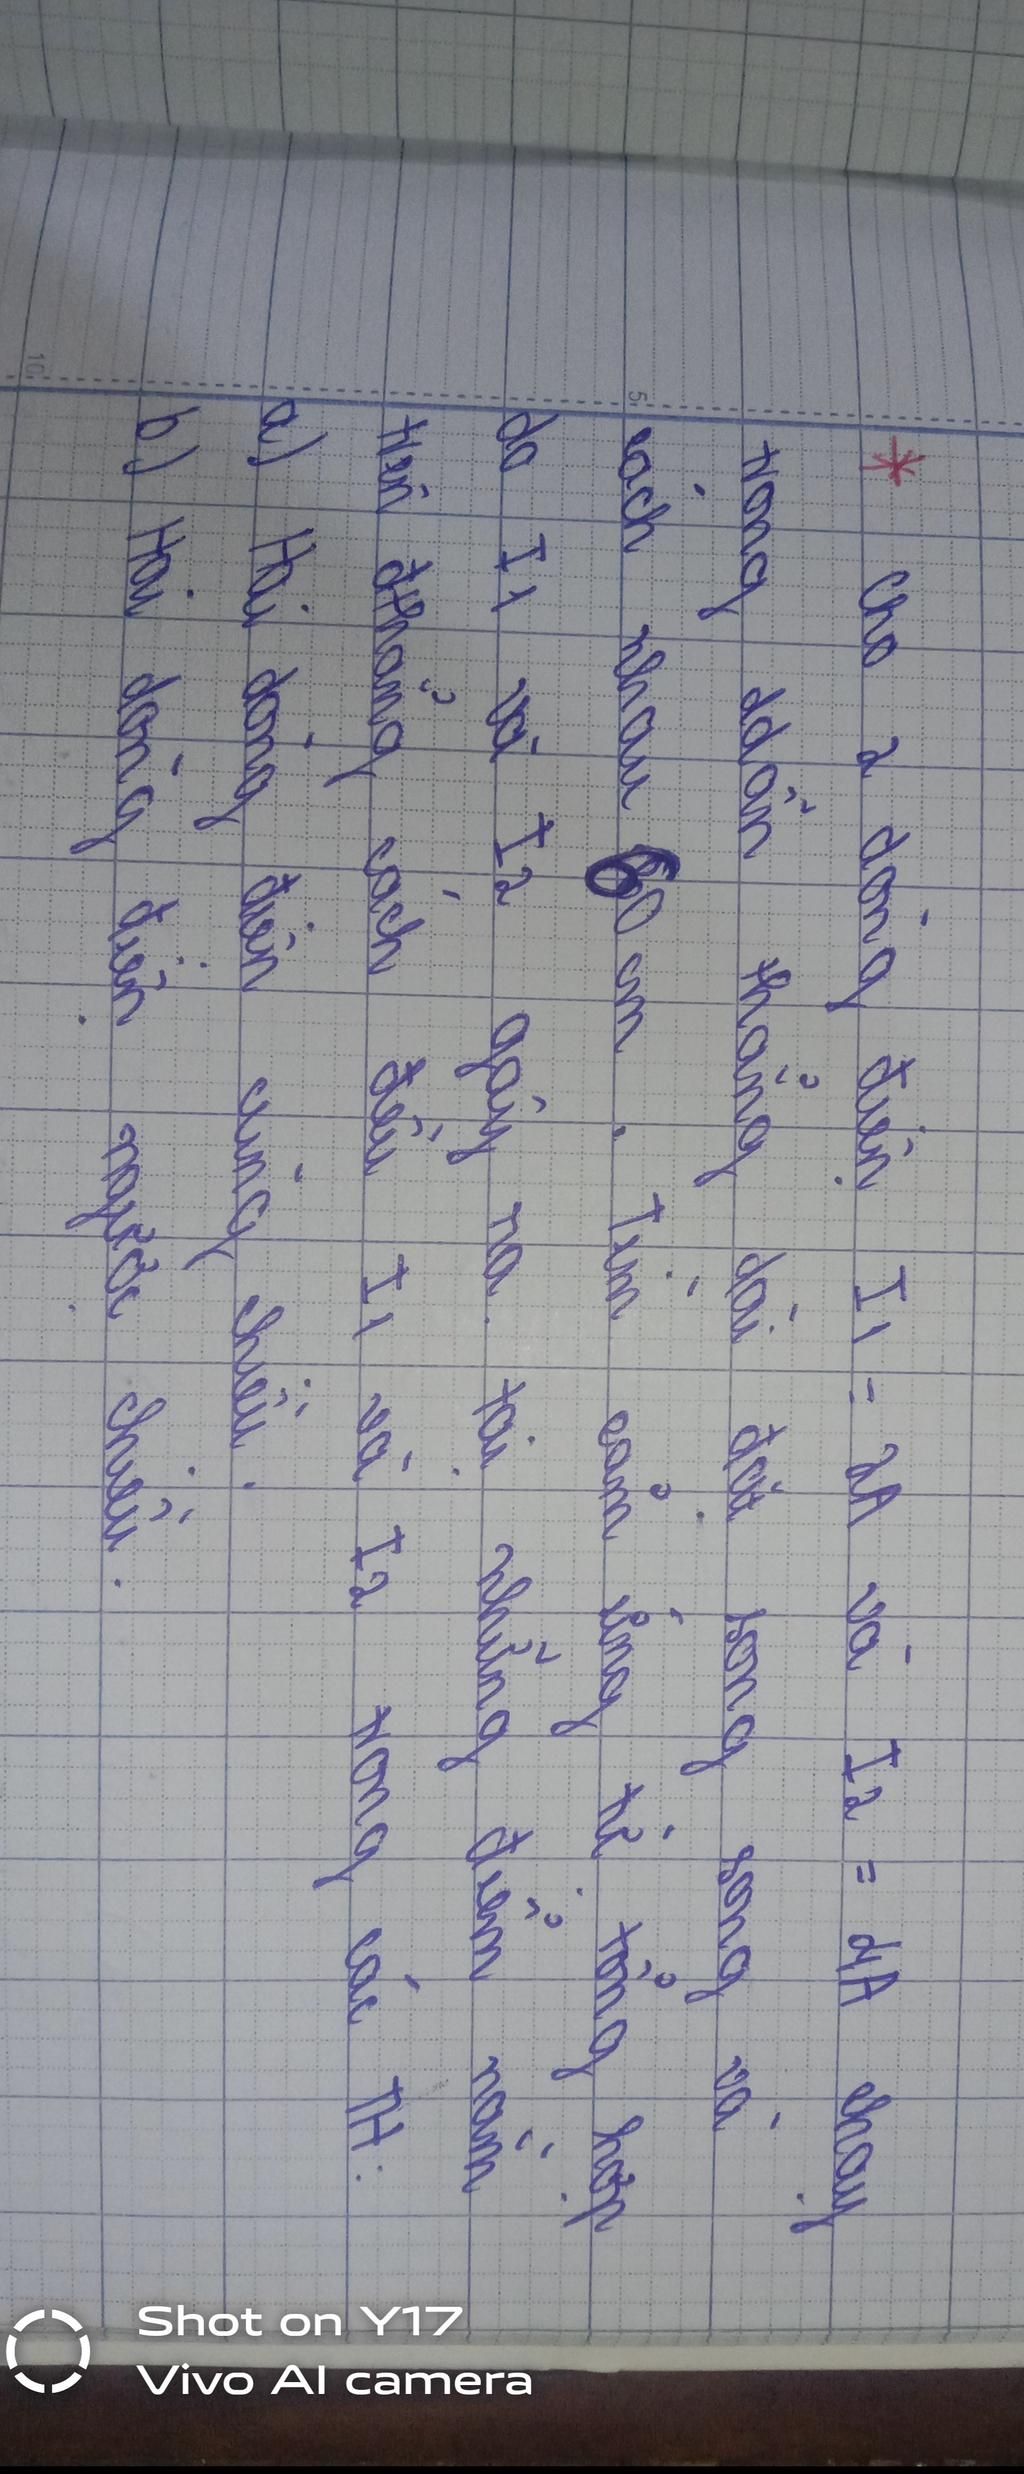 * Cho 2 dòng điện I1 = 2A và I2 = 4A chạy
trong ddẫn thẳng dài đặt song song và
cách nhau 60 cm. Tìm cảm ứng từ tổng hợp
do I1 và I2 gây ra tại những điểm nằm
trên đthẳng cách đều I1 và I2 trong các TH:
a) Hai dòng điện cùng chiều.
b) Hai dòng điện ngược chiều.
5
10
Shot on Y17
Vivo AI camera